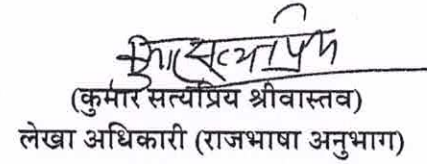 कुमार सत्यप्रिय
(कुमार सत्यप्रिय श्रीवास्तव)
लेखा अधिकारी (राजभाषा अनुभाग)